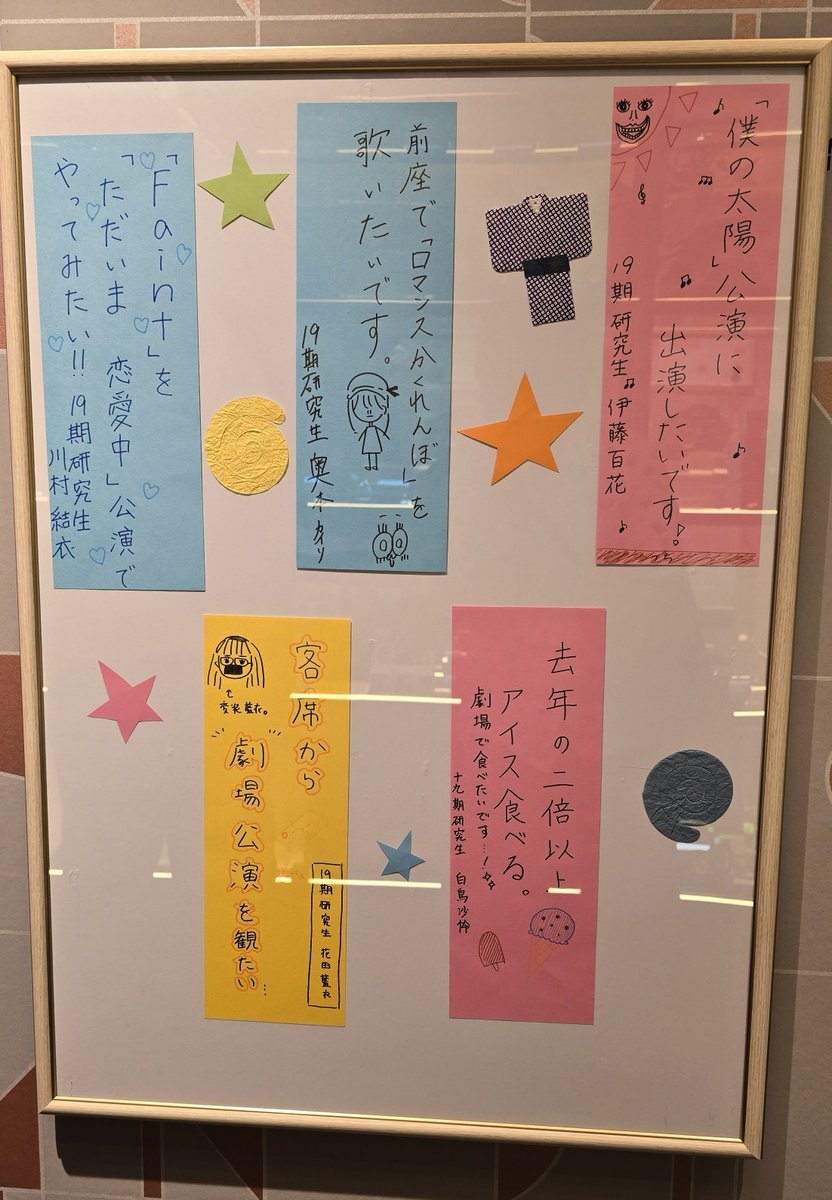 「僕の太陽」公演に
出演したいです。
19期研究生 伊藤百花
前座で「ロマンスかくれんぼ」を
歌いたいです。
19期研究生 奥本カイリ
「Faint」を
「ただいま 恋愛中」公演で
やってみたい!!
19期研究生
川村結衣
去年の二倍以上
アイス食べる。
劇場で食べたいです…!
十九期研究生 白鳥沙怜
客席から
"劇場公演を観たい…
19期研究生 花田藍衣